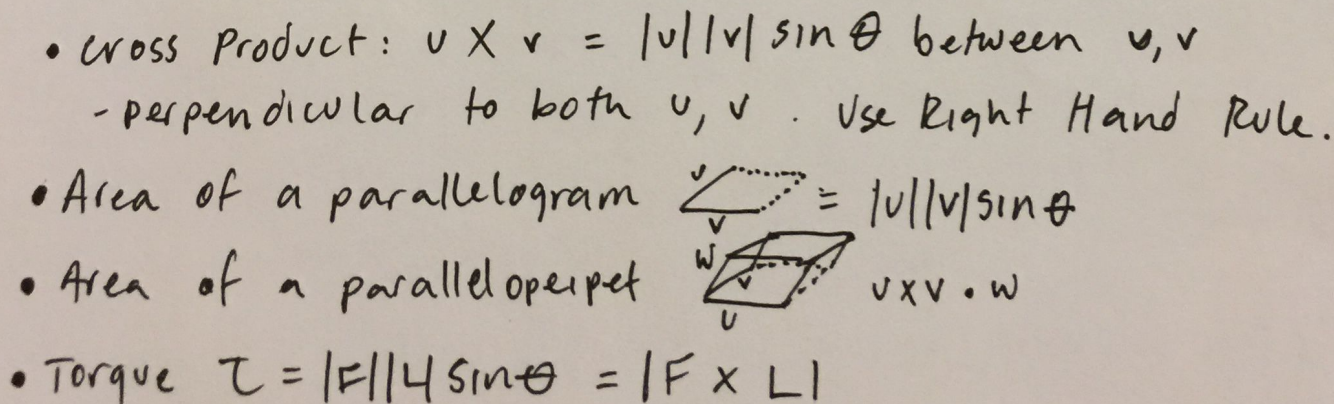 • Cross Product: u X v = |u||v| sin θ between u, v
- perpendicular to both u, v. Use Right Hand Rule.
• Area of a parallelogram u v = |u||v| sin θ
• Area of a parallelopeipet w v u uxv • w
• Torque τ = |F||L| sin θ = |F x L|